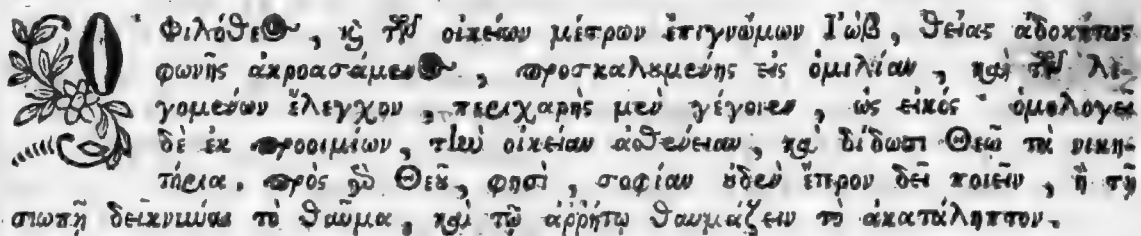 Ὁ φιλόθεος, καὶ τῶν οἰκείων μέτρων ἐπιγνώμων Ἰώβ, θείας ἀδοκήτως
φωνῆς ἀκροασάμενος, προσκαλουμένης εἰς ὁμιλίαν, καὶ τῶν λε-
γομένων ἔλεγχον, περιχαρὴς μὲν γέγονεν, ὡς εἰκός· ὁμολογεῖ
δὲ ἐκ προοιμίων, τὴν οἰκείαν ἀσθένειαν, καὶ δίδωσι Θεῷ τὰ νικη-
τήρια. πρὸς γὸ Θεοῦ, φησὶ, σοφίαν οὐδὲν ἕτερον δεῖ ποιεῖν, ἢ τῇ
σιωπῇ δεικνύναι τὸ θαῦμα, καὶ τῷ ἀρρήτῳ θαυμάζειν τὸ ἀκατάληπτον.